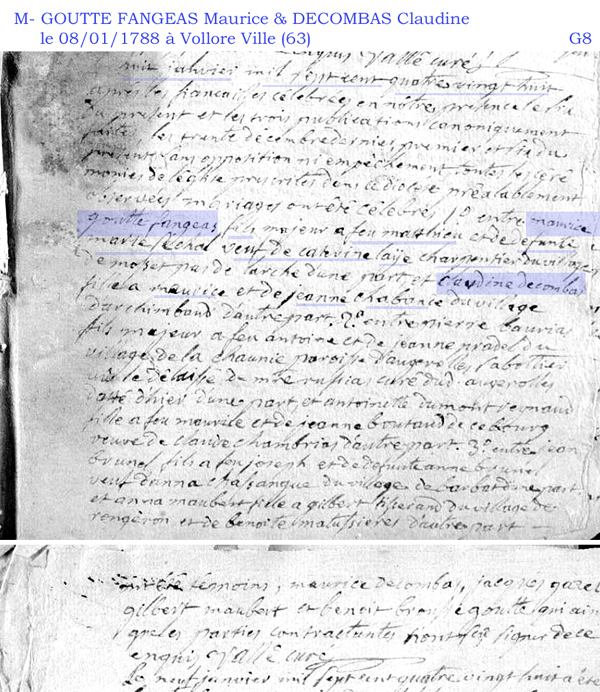 M- GOUTTE FANGEAS Maurice & DECOMBAS Claudine
le 08/01/1788 à Vollore Ville (63)
G8
enquis Vallé curé
huit janvier mil sept cent quatre vingt huit
après les fiancailles célébrées en nôtre présence le dix
du présent et les trois publications canoniquement
faites les trente décembre dernier, premier et six du
présent sans opposition ni empêchement toutes les céré
monies de l'église prescrites dans le diocèse préalablement
observées mariages ont été célébrés 1° entre maurice
goutte fangeas fils majeur a feu matthieu et de défunte
marie lechal veuf de caterine laÿe charpentier du village
de et pas de larche d'une part et claudine decombas
fille a maurice et de jeanne chabance du village
d'archimbaud d'autre part. 2° entre pierre bourias
fils majeur a feu antoine et de jeanne pradel du
village de la chaunie paroisse d'augerolles sabottier
vu le délaissé de mre russias curé dud augerolles
datté d'hier d'une part et antoinette dumont reynaud
fille a feu maurile et de jeanne boutaud de ce bourg
veuve de claude chambrias d'autre part. 3° entre jean
brunel fils a feu joseph et de defunte anne brunel
veuf d'anna chassangue du village de barbardune part
et anna maubert fille a gilbert tisserand du village de
rongeron et de benoite malussieres d'autre part
ont été témoins, maurice decombas, jacques
gilbert maubert et benoit goutte qui ain
que les parties contractantes n'ont sçu signer de ce
enquis Vallé curé
Le neuf janvier mil sept cent quatre vingt huit a été